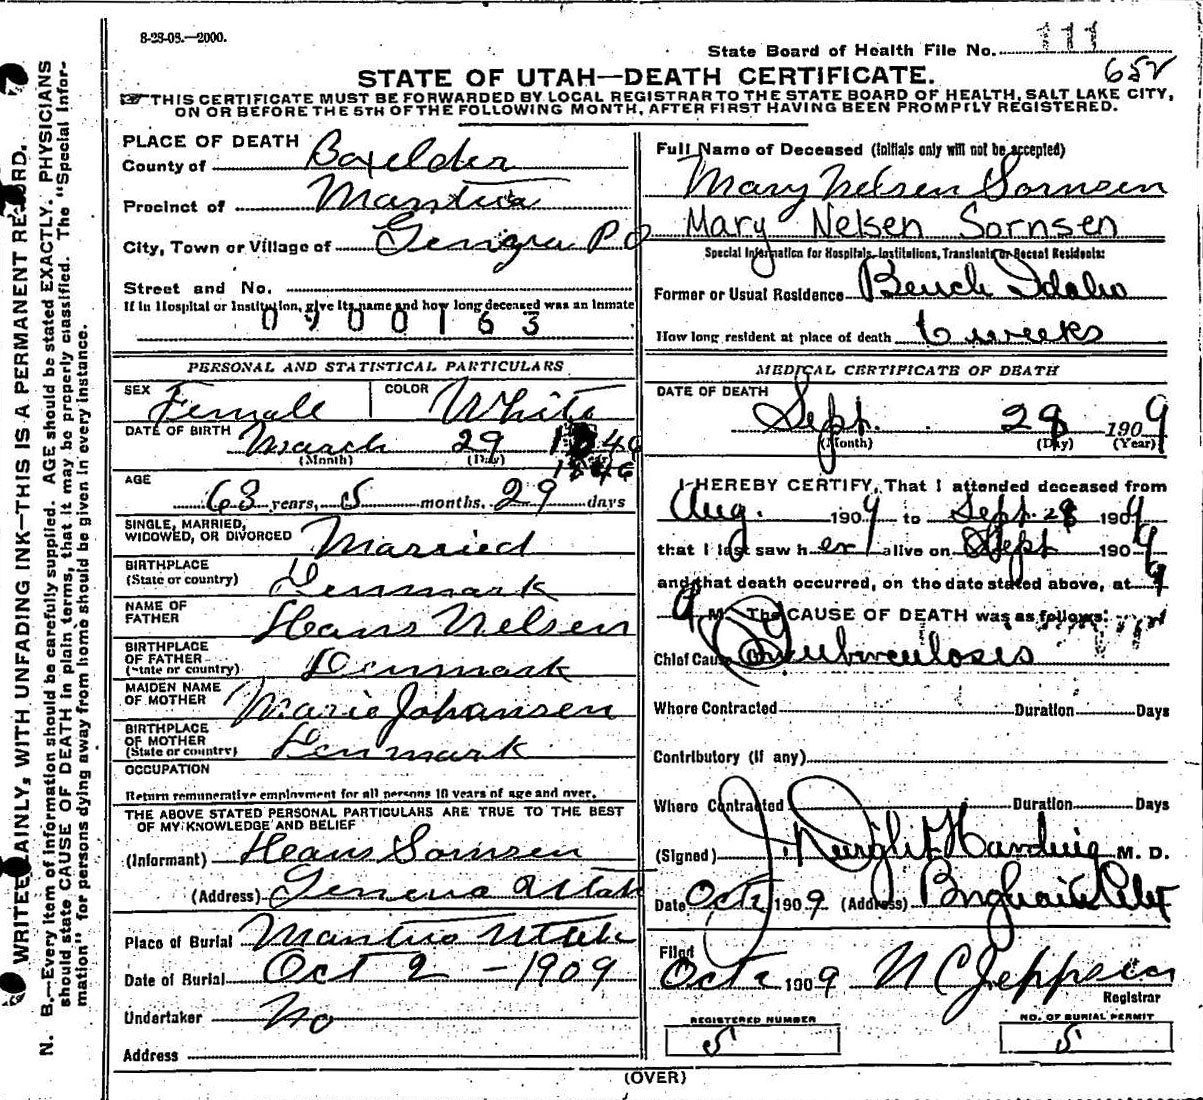 8-28-08.—2000.
State Board of Health File No. 111
652
STATE OF UTAH—DEATH CERTIFICATE.
THIS CERTIFICATE MUST BE FORWARDED BY LOCAL REGISTRAR TO THE STATE BOARD OF HEALTH, SALT LAKE CITY,
ON OR BEFORE THE 5TH OF THE FOLLOWING MONTH, AFTER FIRST HAVING BEEN PROMPTLY REGISTERED.
WRITE PLAINLY, WITH UNFADING INK—THIS IS A PERMANENT RECORD.
N. B.—Every item of information should be carefully supplied. AGE should be stated EXACTLY. PHYSICIANS
should state CAUSE OF DEATH in plain terms, that it may be properly classified. The "Special Infor-
mation" for persons dying away from home should be given in every instance.
PLACE OF DEATH
County of Boxelder
Precinct of Mantua
City, Town or Village of P O
Street and No.
If in Hospital or Institution, give its name and how long deceased was an inmate
0900163
PERSONAL AND STATISTICAL PARTICULARS
SEX Female COLOR White
DATE OF BIRTH March 29 1846
(Month) (Day)
1846
AGE
63 years, 5 months, 29 days
SINGLE, MARRIED,
WIDOWED, OR DIVORCED Married
BIRTHPLACE
(State or country) Denmark
NAME OF
FATHER Hans Nelsen
BIRTHPLACE
OF FATHER
(State or country) Denmark
MAIDEN NAME
OF MOTHER Marie Johansen
BIRTHPLACE
OF MOTHER
(State or country) Denmark
OCCUPATION
Return remunerative employment for all persons 10 years of age and over.
THE ABOVE STATED PERSONAL PARTICULARS ARE TRUE TO THE BEST
OF MY KNOWLEDGE AND BELIEF
(Informant) Hans Sornsen
(Address) Geneva Utah
Place of Burial Mantua Utah
Date of Burial Oct 2 - 1909
Undertaker No
Address
Full Name of Deceased (Initials only will not be accepted)
Mary Nelsen Sornsen
Mary Nelsen Sornsen
Special Information for Hospitals, Institutions, Transients or Recent Residents:
Former or Usual Residence Bench Idaho
How long resident at place of death 6 weeks
MEDICAL CERTIFICATE OF DEATH
DATE OF DEATH
Sept. 28 1909
(Month) (Day) (Year)
I HEREBY CERTIFY, That I attended deceased from
Aug. 1909 to Sept. 28 1909
that I last saw her alive on Sept 1909
and that death occurred, on the date stated above, at 9
M. The CAUSE OF DEATH was as follows:
Chief Cause Tuberculosis
Where Contracted Duration Days
Contributory (if any)
Where Contracted Duration Days
(Signed) J. Harding M. D.
Date Oct 1909 (Address)
Filed
Oct 2 1909 N C Jeppesen
Registrar
REGISTERED NUMBER
5
NO. OF BURIAL PERMIT
5
(OVER)